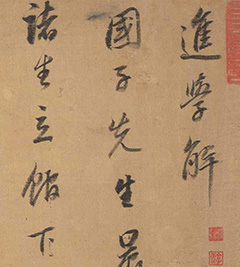 進學解
國子先生晨
諸生立館下